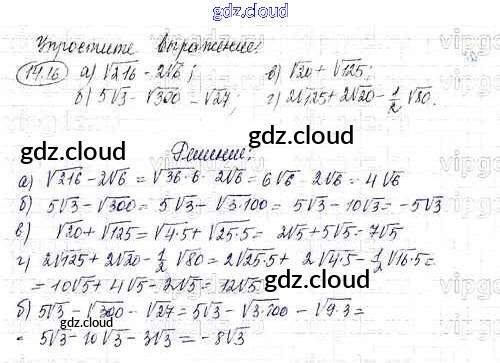 gdz.cloud
Упростите выражение:
14.16 а) √216 - 2√6; в) √20 + √125;
б) 5√3 - √300 - √27; г) 2√125 + 2√20 - 1/2 √80.
gdz.cloud
gdz.cloud
Решение:
а) √216 - 2√6 = √36·6 - 2√6 = 6√6 - 2√6 = 4√6
б) 5√3 - √300 = 5√3 + √3·100 = 5√3 - 10√3 = -5√3
в) √20 + √125 = √4·5 + √25·5 = 2√5 + 5√5 = 7√5
г) 2√125 + 2√20 - 1/2 √80 = 2√25·5 + 2√4·5 - 1/2 √16·5 =
= 10√5 + 4√5 - 2√5 = 12√5
б) 5√3 - √300 - √27 = 5√3 - √3·100 - √9·3 =
gdz.cloud
gdz.cloud
= 5√3 - 10√3 - 3√3 = -8√3